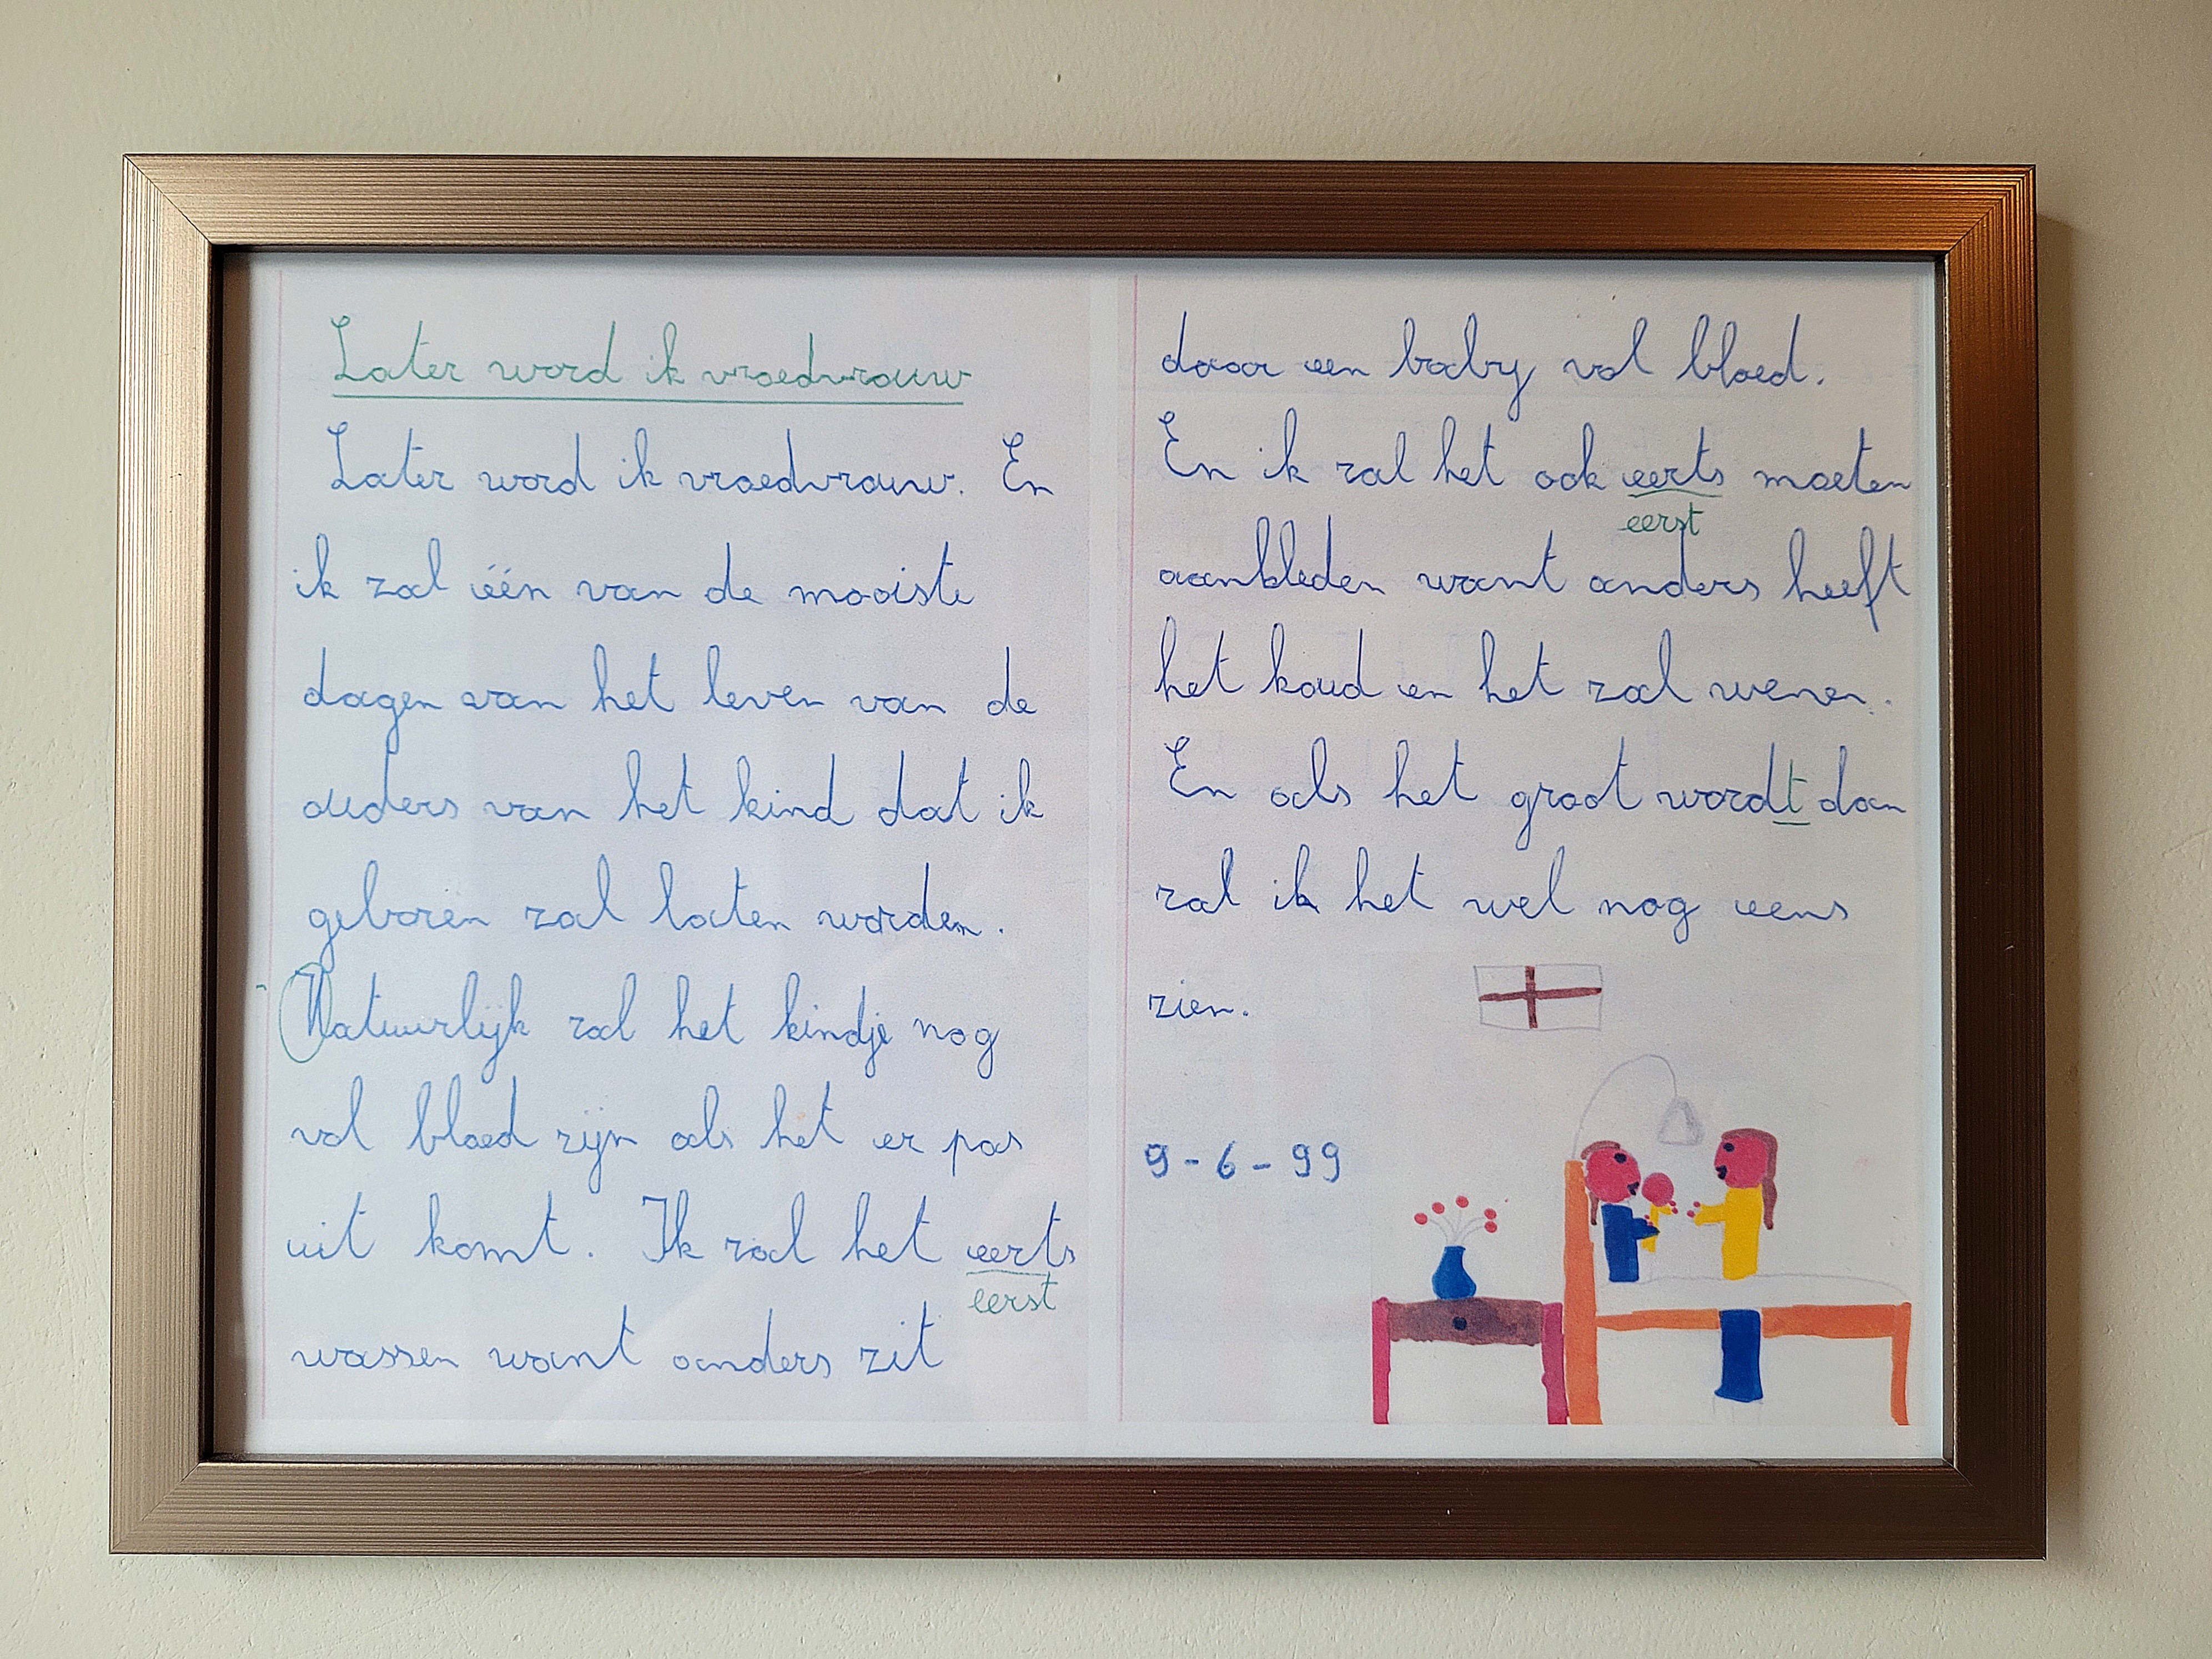 Later word ik vroedvrouw
Later word ik vroedvrouw. En
ik zal één van de mooiste
dagen van het leven van de
ouders van het kind dat ik
geboren zal laten worden.
Natuurlijk zal het kindje nog
vol bloed zijn als het er pas
uit komt. Ik zal het eerts
eerst
wassen want anders zit
daar een baby vol bloed.
En ik zal het ook eerts moeten
eerst
aankleden want anders heeft
het koud en het zal wenen.
En als het groot wordt dan
zal ik het wel nog eens
zien.
9-6-99